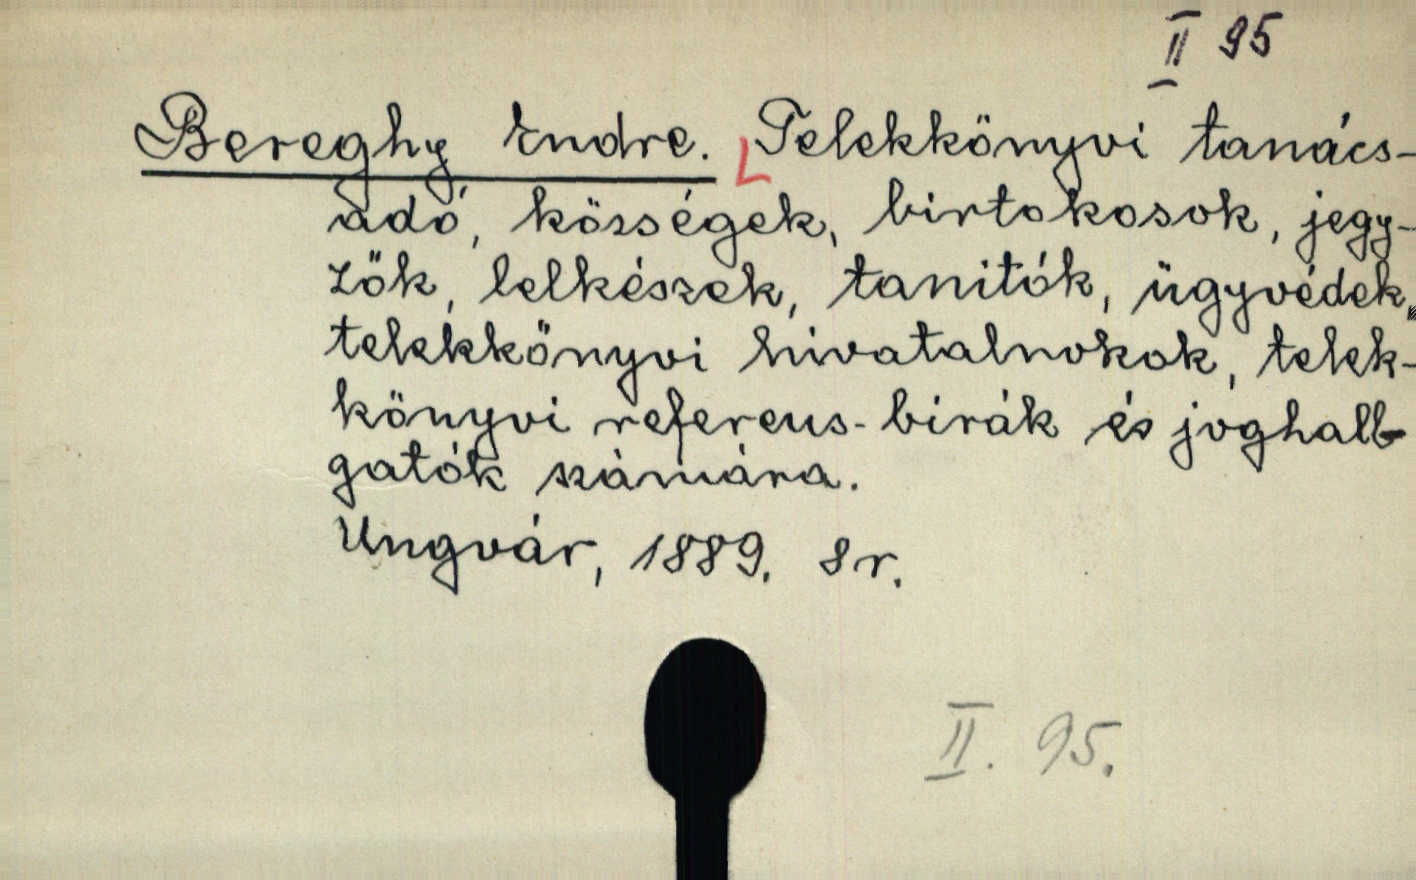 II 95
Bereghy Endre. Telekkönyvi tanács-
adó, községek, birtokosok, jegy-
zők, lelkészek, tanitók, ügyvédek,
telekkönyvi hivatalnokok, telek-
könyvi referens-birák és joghall-
gatók számára.
Ungvár, 1889. 8r.
II. 95.